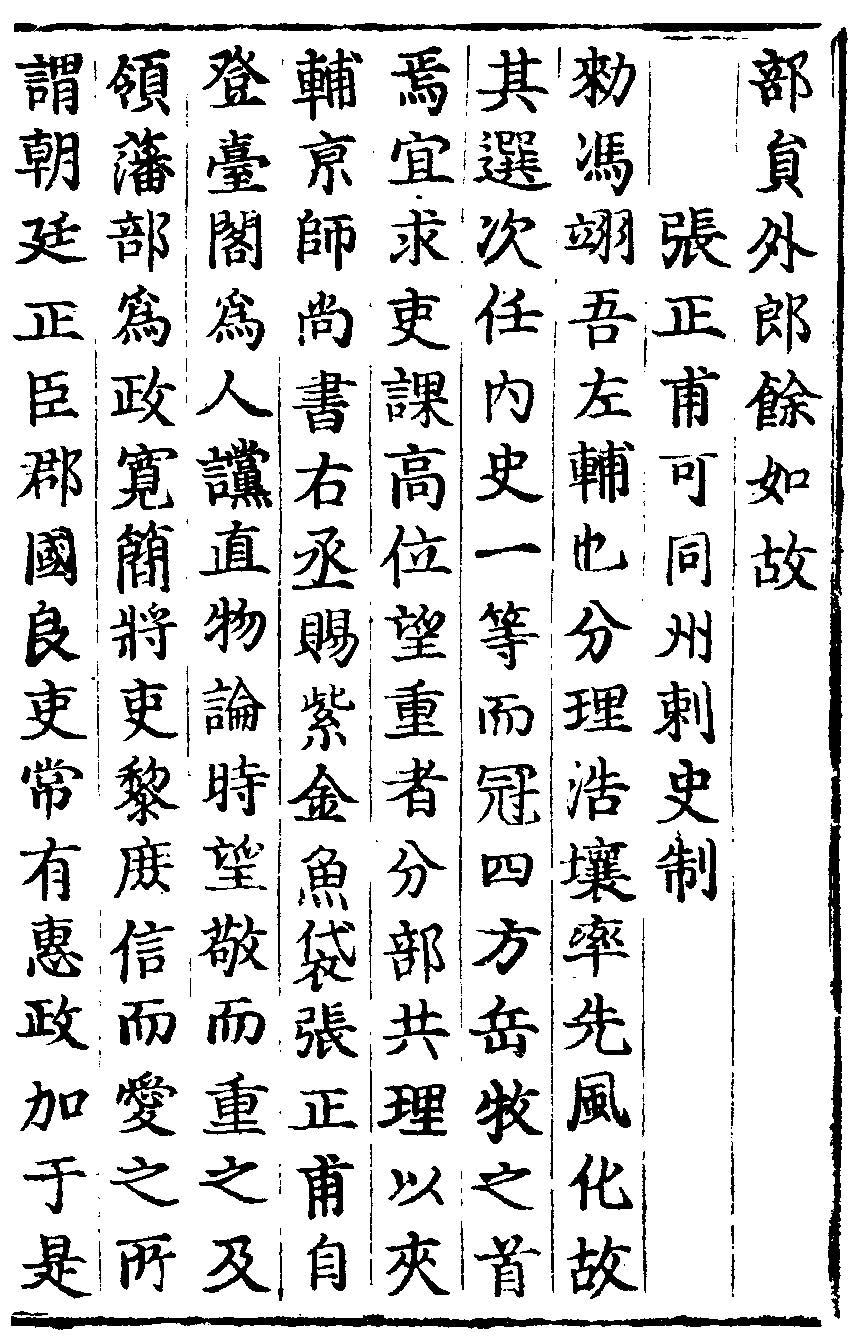 部貟外郎餘如故
張正甫可同州刺史制
勑馮翊吾左輔也分理浩壤率先風化故
其選次任内史一等而冠四方岳牧之首
焉宜求吏課高位望重者分部共理以夾
輔京師尚書右丞賜紫金魚袋張正甫自
登臺閣爲人讜直物論時望敬而重之及
領藩部爲政寬簡將吏黎庶信而愛之所
謂朝廷正臣郡國良吏常有惠政加于是